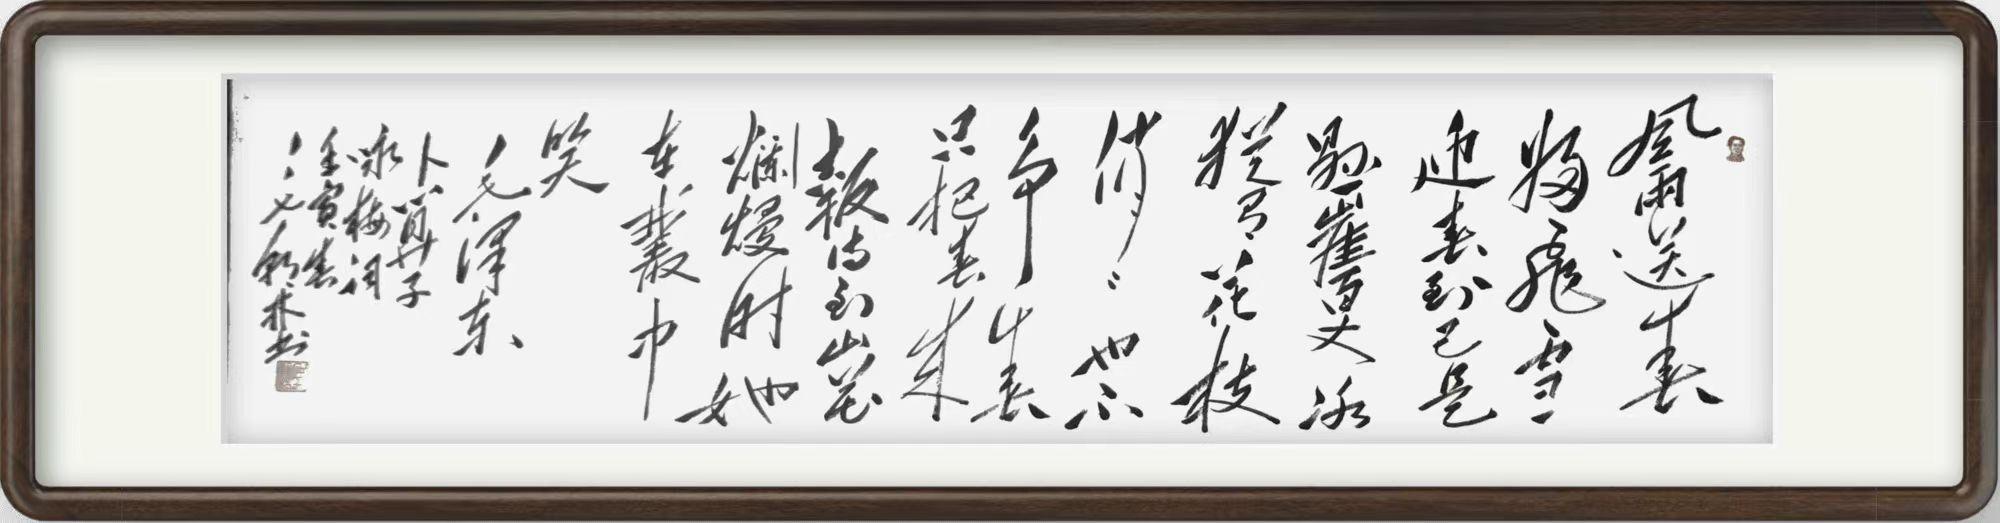 風雨送春
歸飛雪
迎春到已是
懸崖百丈冰
猶有花枝
俏〻也不
争春
只把春来
報待到山花
爛熳时她
在叢中
笑
毛澤东
卜算子
咏梅词
壬寅春
书